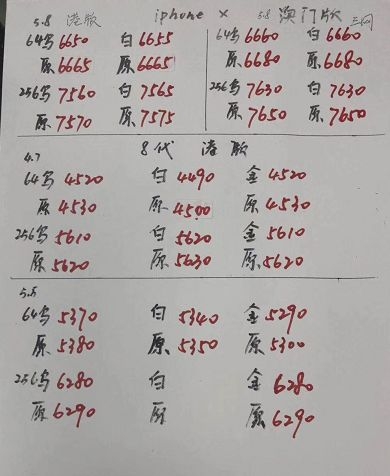 5.8 港版 iphone X 5.8 澳门版 三网
64乌 6650 白 6655 64乌 6660 白 6660
原 6665 原 6665 原 6680 原 6680
256乌 7560 白 7565 256乌 7630 白 7630
原 7570 原 7575 原 7650 原 7650
4.7 8代 港版
64乌 4520 白 4490 金 4520
原 4530 原 4500 原 4530
256乌 5610 白 5620 金 5610
原 5620 原 5630 原 5620
5.5
64乌 5370 白 5340 金 5290
原 5380 原 5350 原 5300
256乌 6280 白 金 6280
原 6290 原 原 6290